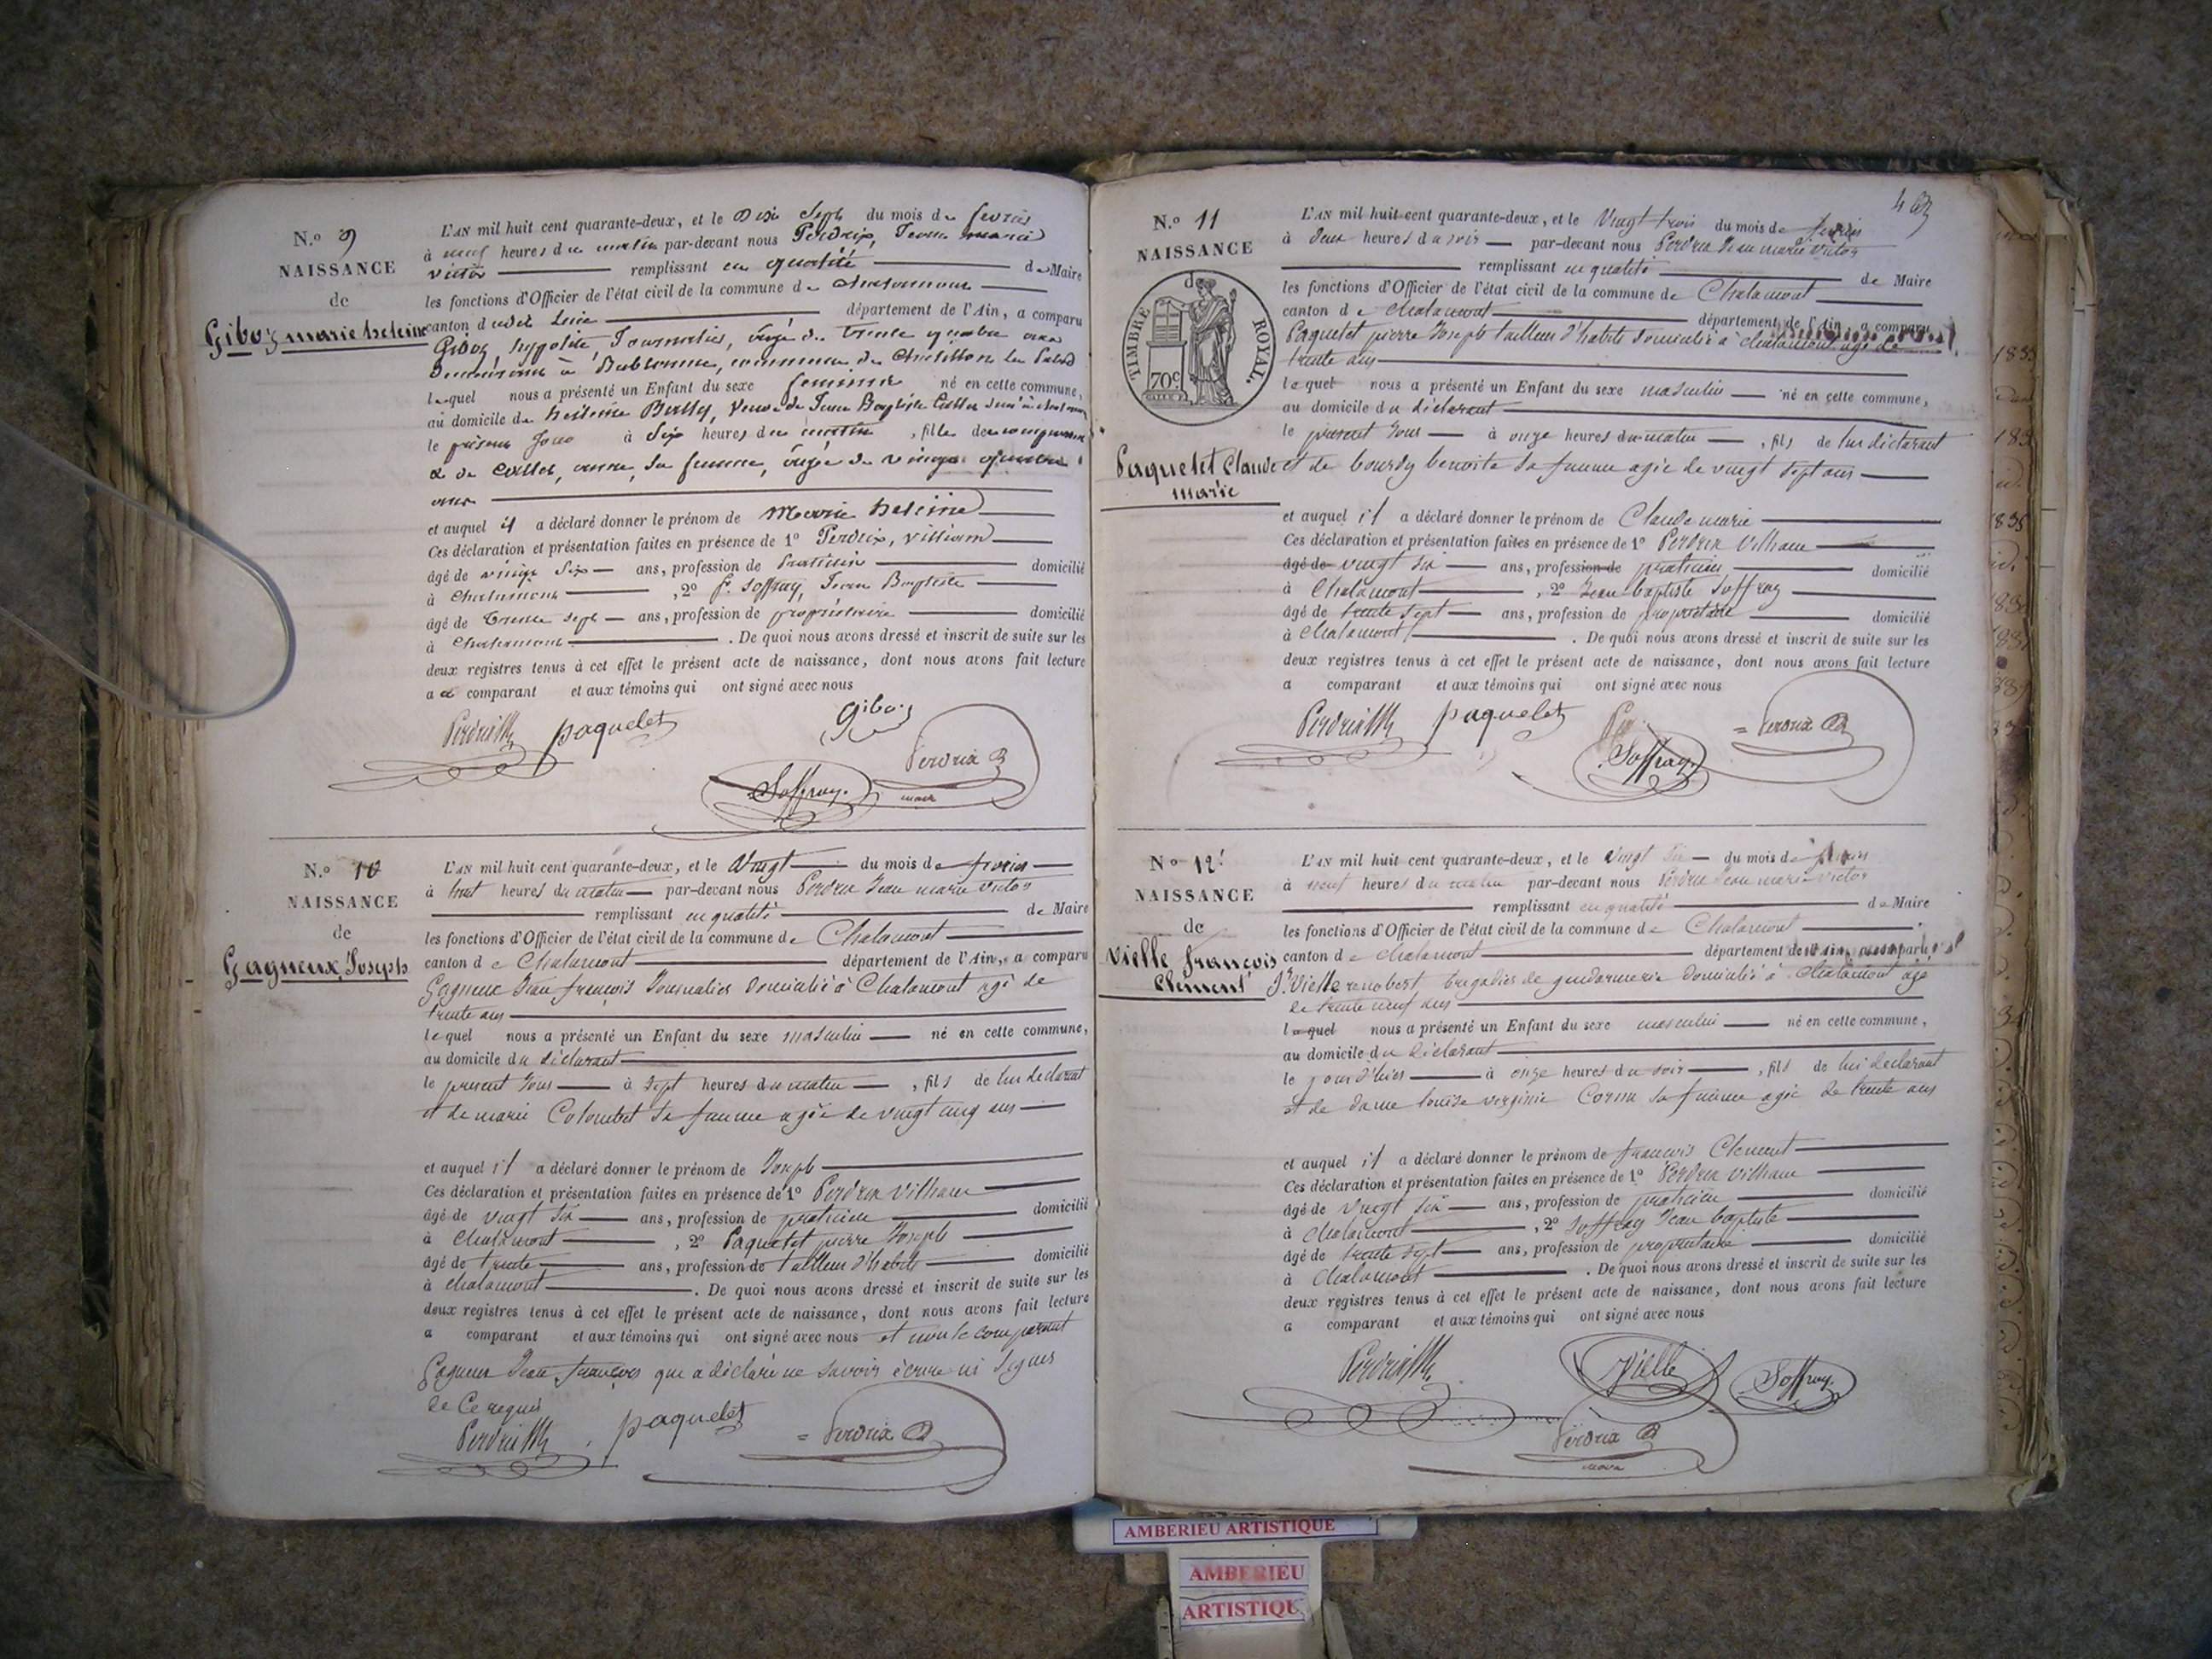 N.o 9
NAISSANCE
de
Giboz marie heleine
L'AN mil huit cent quarante-deux, et le Dix Sept du mois de fevrier
à neuf heures du matin par-devant nous Perdrix, Jean marie
victor remplissant en qualité de Maire
les fonctions d'Officier de l'état civil de la commune de Chalamont
canton dudit Lieu département de l'Ain, a comparu
Giboz, hyppolite, Journalier, âgé de trente quatre ans
Demeurant à Bublanne, commune de Chatillon la Palud
lequel nous a présenté un Enfant du sexe feminin né en cette commune,
au domicile de heleine Buffy, Veuve de Jean Baptiste
le présent Jour à Six heures du matin , fille de comparant
& de anne, sa femme, âgée de vingt quatre
ans
et auquel il a déclaré donner le prénom de Marie heleine
Ces déclaration et présentation faites en présence de 1o Perdrix, villiam
âgé de vingt Six ans, profession de Praticien domicilié
à Chalamont , 2o Soffray, Jean Baptiste
âgé de Trente Sept ans, profession de propriétaire domicilié
à Chalamont . De quoi nous avons dressé et inscrit de suite sur les
deux registres tenus à cet effet le présent acte de naissance, dont nous avons fait lecture
a comparant et aux témoins qui ont signé avec nous
Giboz
Perdrix paquelet
Perdrix
Soffray. maire
N.o 10
NAISSANCE
de
Gagneux, Joseph
L'AN mil huit cent quarante-deux, et le Vingt du mois de fevrier
à huit heures du matin par-devant nous Perdrix Jean marie Victor
remplissant en qualité de Maire
les fonctions d'Officier de l'état civil de la commune de Chalamont
canton de Chalamont département de l'Ain, a comparu
Gagneux Jean françois Journalier domicilié à Chalamont agé de
trente ans
lequel nous a présenté un Enfant du sexe masculin né en cette commune,
au domicile du déclarant
le present Jour à sept heures du matin , fils de lui declarant
et de marie Colombet sa femme agée de vingt cinq ans
et auquel il a déclaré donner le prénom de Joseph
Ces déclaration et présentation faites en présence de 1o Perdrix Villiam
âgé de vingt six ans, profession de praticien domicilié
à Chalamont , 2o Paquelet pierre Joseph
âgé de trente ans, profession de tailleur d'habits domicilié
à chalamont . De quoi nous avons dressé et inscrit de suite sur les
deux registres tenus à cet effet le présent acte de naissance, dont nous avons fait lecture
a comparant et aux témoins qui ont signé avec nous et non le comparant
Gagneux Jean françois qui a déclaré ne savoir écrire ni signer
de Ce requis
Perdrix paquelet Perdrix
N.o 11
NAISSANCE
de
TIMBRE ROYAL.
70c
Paquelet Claude
marie
L'AN mil huit cent quarante-deux, et le Vingt trois du mois de fevrier
à deux heures du soir par-devant nous Perdrix Jean marie Victor
remplissant en qualité de Maire
les fonctions d'Officier de l'état civil de la commune de Chalamont
canton de chalamont département de l'Ain, a comparu
Paquelet pierre Joseph tailleur d'habits domicilié à chalamont agé de
trente ans
lequel nous a présenté un Enfant du sexe masculin né en cette commune,
au domicile du déclarant
le present Jour à onze heures du matin , fils de lui declarant
et de bourdy benoite sa femme agée de vingt sept ans
et auquel il a déclaré donner le prénom de Claude marie
Ces déclaration et présentation faites en présence de 1o Perdrix Villiam
âgé de vingt six ans, profession de praticien domicilié
à Chalamont , 2o Jean baptiste Soffray
âgé de trente sept ans, profession de proprietaire domicilié
à Chalamont . De quoi nous avons dressé et inscrit de suite sur les
deux registres tenus à cet effet le présent acte de naissance, dont nous avons fait lecture
a comparant et aux témoins qui ont signé avec nous
Perdrix paquelet Perdrix
Soffray
N.o 12
NAISSANCE
de
Vielle françois
Clement
L'AN mil huit cent quarante-deux, et le vingt six du mois de fevrier
à neuf heures du matin par-devant nous Perdrix Jean marie Victor
remplissant en qualité de Maire
les fonctions d'Officier de l'état civil de la commune de Chalamont
canton de chalamont département de l'Ain, a comparu
Vielle renobert brigadier de gendarmerie domicilié à Chalamont agé
de trente neuf ans
lequel nous a présenté un Enfant du sexe masculin né en cette commune,
au domicile du déclarant
le jour d'hier à onze heures du soir , fils de lui declarant
et de dame louise virginie Cornu sa femme agée de trente ans
et auquel il a déclaré donner le prénom de francois Clement
Ces déclaration et présentation faites en présence de 1o Perdrix Villiam
âgé de vingt six ans, profession de praticien domicilié
à Chalamont , 2o Soffray Jean baptiste
âgé de trente sept ans, profession de proprietaire domicilié
à Chalamont . De quoi nous avons dressé et inscrit de suite sur les
deux registres tenus à cet effet le présent acte de naissance, dont nous avons fait lecture
a comparant et aux témoins qui ont signé avec nous
Perdrix Vielle Soffray.
Perdrix
maire
AMBERIEU ARTISTIQUE
AMBERIEU
ARTISTIQUE